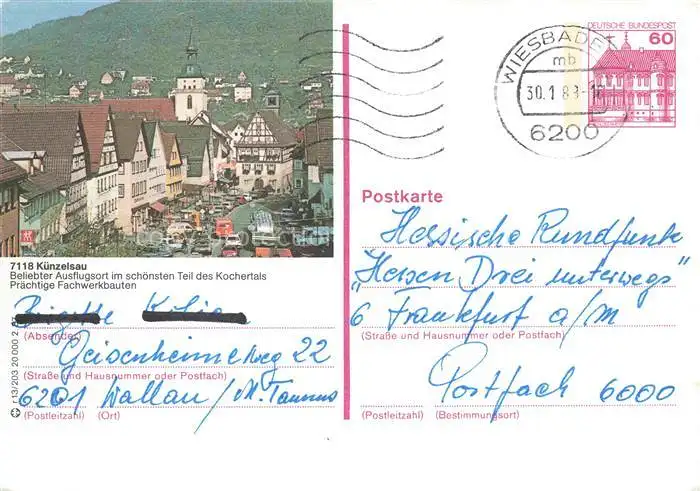 DEUTSCHE BUNDESPOST
60
WIESBADEN
mb
30.1.83-
6200
7118 Künzelsau
Beliebter Ausflugsort im schönsten Teil des Kochertals
Prächtige Fachwerkbauten
(Absender)
Geisenheimerweg 22
(Straße und Hausnummer oder Postfach)
6201 Wallau / M. Taunus
(Postleitzahl) (Ort)
Postkarte
Hessische Rundfunk
"Hessen Drei unterwegs"
6 Frankfurt a/M
(Straße und Hausnummer oder Postfach)
Postfach 6000
(Postleitzahl) (Bestimmungsort)